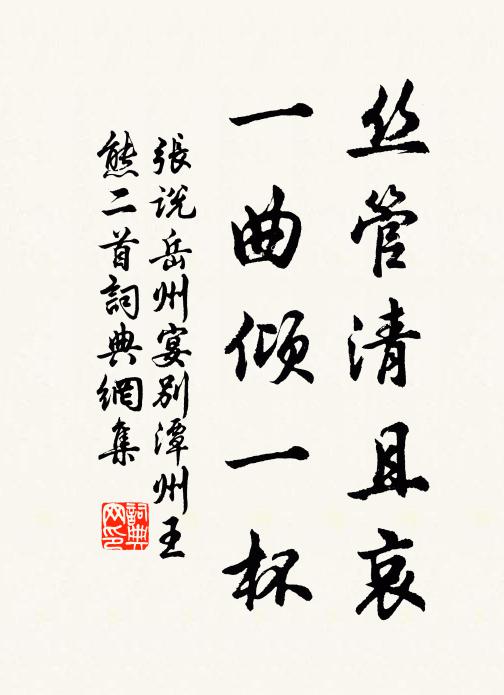 丝管清且哀
一曲倾一杯
張说岳州宴别潭州王
熊二首詞典網集
詞典
网印